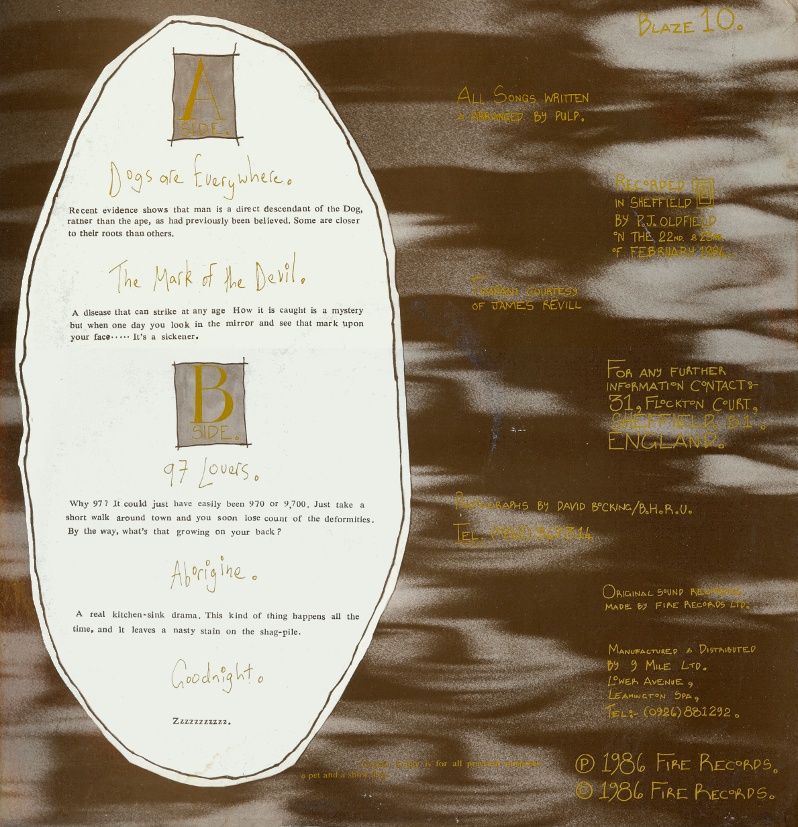 A
SIDE.
Dogs are Everywhere.
Recent evidence shows that man is a direct descendant of the Dog,
rather than the ape, as had previously been believed. Some are closer
to their roots than others.
The Mark of the Devil.
A disease that can strike at any age How it is caught is a mystery
but when one day you look in the mirror and see that mark upon
your face..... It's a sickener.
B
SIDE.
97 Lovers.
Why 97? It could just have easily been 970 or 9,700. Just take a
short walk around town and you soon lose count of the deformities.
By the way, what's that growing on your back?
Aborigine.
A real kitchen-sink drama. This kind of thing happens all the
time, and it leaves a nasty stain on the shag-pile.
Goodnight.
Zzzzzzzzzz.
is for all
a pet and a
BLAZE 10.
ALL SONGS WRITTEN
& ARRANGED BY PULP.
RECORDED
IN SHEFFIELD
BY P.J. OLDFIELD
ON THE 22ND. & 23RD.
OF FEBRUARY 1986.
COURTESY
OF JAMES REVILL
FOR ANY FURTHER
INFORMATION CONTACT:-
31, FLOCKTON COURT,
SHEFFIELD. S1.
ENGLAND.
PHOTOGRAPHS BY DAVID BOCKING/B.H.R.U.
TEL.
ORIGINAL SOUND RECORDING
MADE BY FIRE RECORDS LTD.
MANUFACTURED & DISTRIBUTED
BY 9 MILE LTD.
LOWER AVENUE,
LEAMINGTON SPA,
TEL:- (0926) 881292.
℗ 1986 FIRE RECORDS.
© 1986 FIRE RECORDS.